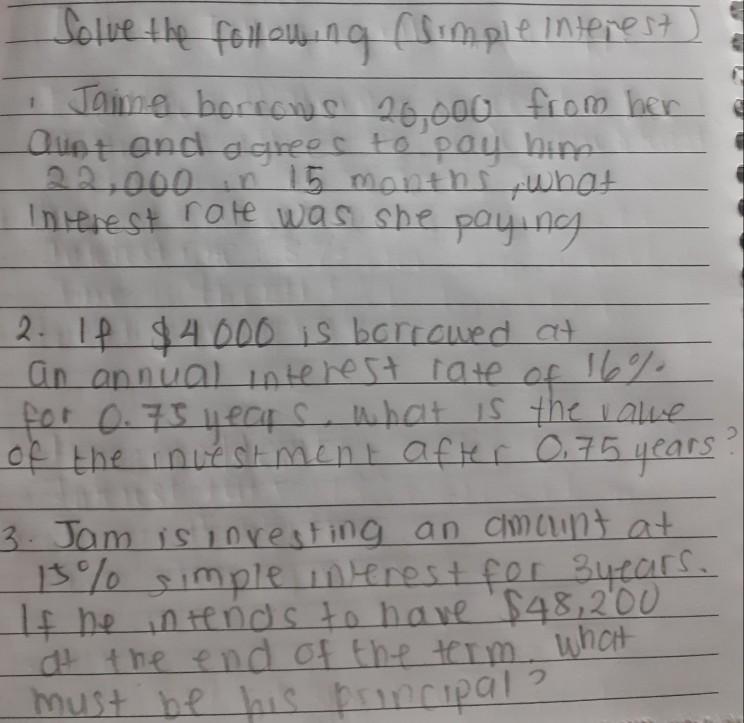 Solve the following (Simple interest)
1 Jaime borrows 20,000 from her
aunt and agrees to pay him
22,000 in 15 months, what
interest rate was she paying
2. If $4000 is borrowed at
an annual interest rate of 16%
for 0.75 years. what is the value
of the investment after 0.75 years?
3. Jam is investing an amount at
15% simple interest for 3years.
If he intends to have $48,200
at the end of the term. what
must be his principal?